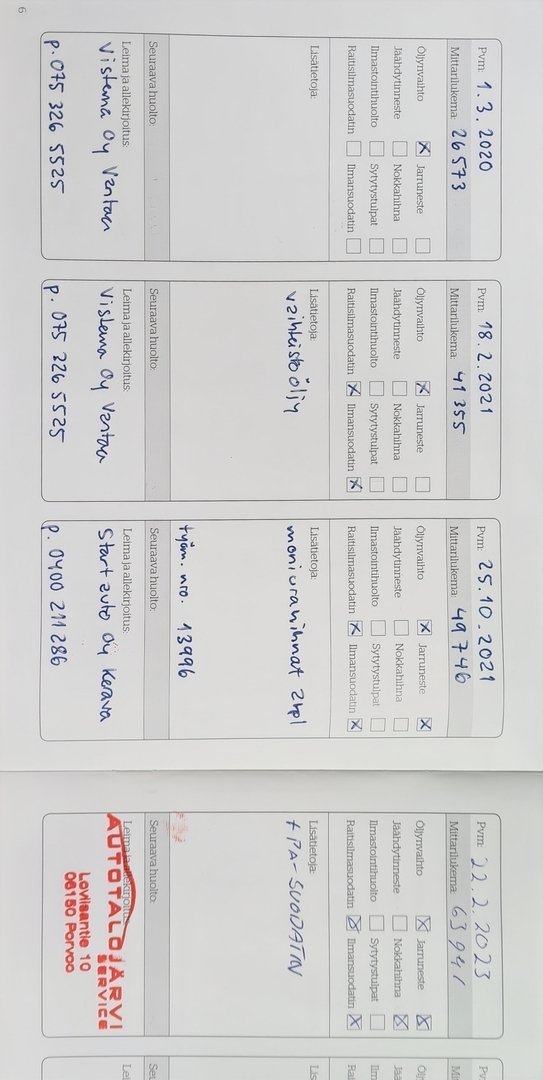 6
Pvm: 1.3.2020
Mittarilukema: 26573
Öljynvaihto ☒ Jarruneste ☐
Jäähdytinneste ☐ Nokkahihna ☐
Ilmastointihuolto ☐ Sytytystulpat ☐
Raitisilmasuodatin ☐ Ilmansuodatin ☐
Lisätietoja:
Seuraava huolto:
Leima ja allekirjoitus:
Vistema Oy Vantaa
p. 075 326 5525
Pvm: 18.2.2021
Mittarilukema: 41355
Öljynvaihto ☒ Jarruneste ☐
Jäähdytinneste ☐ Nokkahihna ☐
Ilmastointihuolto ☐ Sytytystulpat ☐
Raitisilmasuodatin ☒ Ilmansuodatin ☒
Lisätietoja:
vaihteistoöljy
Seuraava huolto:
Leima ja allekirjoitus:
Vistema Oy Vantaa
p. 075 326 5525
Pvm: 25.10.2021
Mittarilukema: 49746
Öljynvaihto ☒ Jarruneste ☒
Jäähdytinneste ☐ Nokkahihna ☐
Ilmastointihuolto ☐ Sytytystulpat ☐
Raitisilmasuodatin ☒ Ilmansuodatin ☒
Lisätietoja:
moniurahihnat 2kpl
työm. nro. 13996
Seuraava huolto:
Leima ja allekirjoitus:
Startauto Oy Kerava
p. 0400 211 286
Pvm: 22.2.2023
Mittarilukema: 63941
Öljynvaihto ☒ Jarruneste ☒
Jäähdytinneste ☐ Nokkahihna ☒
Ilmastointihuolto ☐ Sytytystulpat ☐
Raitisilmasuodatin ☒ Ilmansuodatin ☒
Lisätietoja:
+ PA-SUODATIN
Seuraava huolto:
Leima ja allekirjoitus:
AUTOTALO JÄRVI
SERVICE
Loviisantie 10
06150 Porvoo